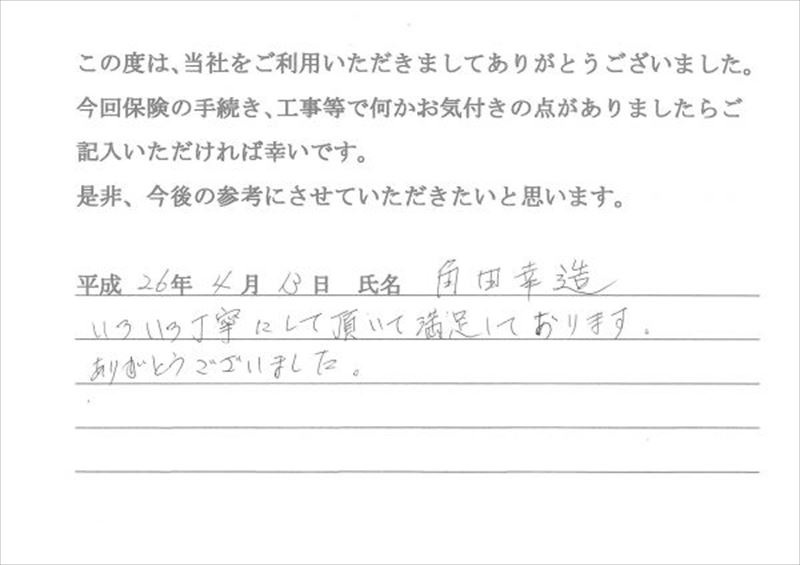 この度は、当社をご利用いただきましてありがとうございました。
今回保険の手続き、工事等で何かお気付きの点がありましたらご
記入いただければ幸いです。
是非、今後の参考にさせていただきたいと思います。
平成 26年 4月 13日 氏名 角田幸造
いろいろ丁寧にして頂いて満足しております。
ありがとうございました。